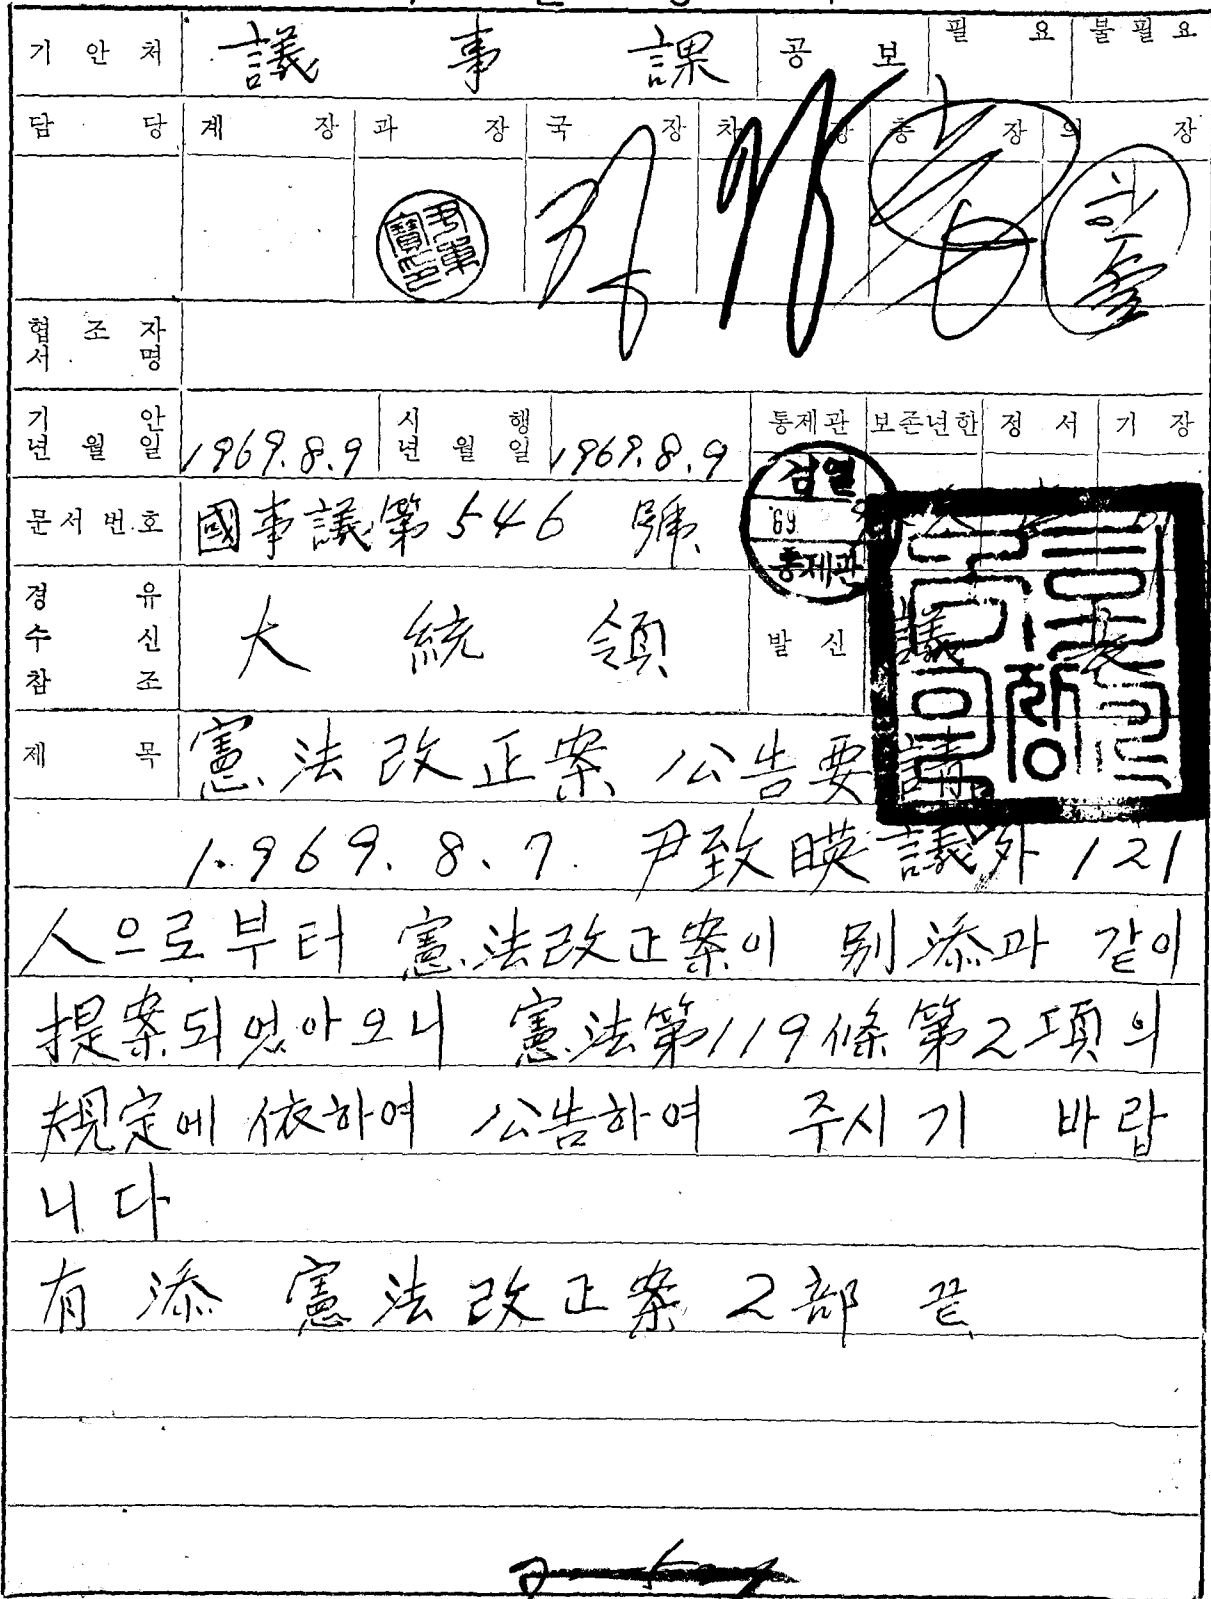 기 안 처 議 事 課 공 보 필 요 불 필 요
담 당 계 장 과 장 국 장 차 장 총 장 의 장
협 조 자
서 명
기 안
년 월 일 1969.8.9 시 행
년 월 일 1969.8.9 통제관 보존년한 정 서 기 장
검열
'69.
통제관
문서번호 國事議第546 號
경 유
수 신 大 統 領 발 신 議 長
참 조
제 목 憲法改正案 公告要請
1969. 8. 7. 尹致暎議外 121
人으로부터 憲法改正案이 別添과 같이
提案되었아오니 憲法第119條第2項의
規定에 依하여 公告하여 주시기 바랍
니다
有添 憲法改正案 2部 끝